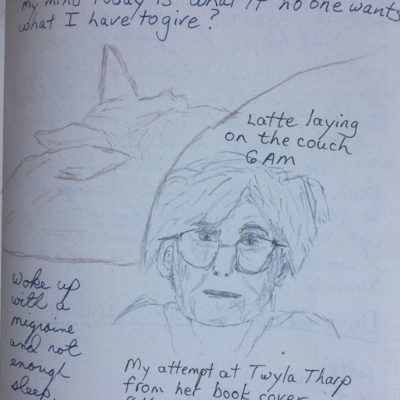 my mind today is what if no one wants
what I have to give?
Latte laying
on the couch
6 AM
Woke up
with a
migraine
and not
enough
sleep.
My attempt at Twyla Tharp
from her book cover